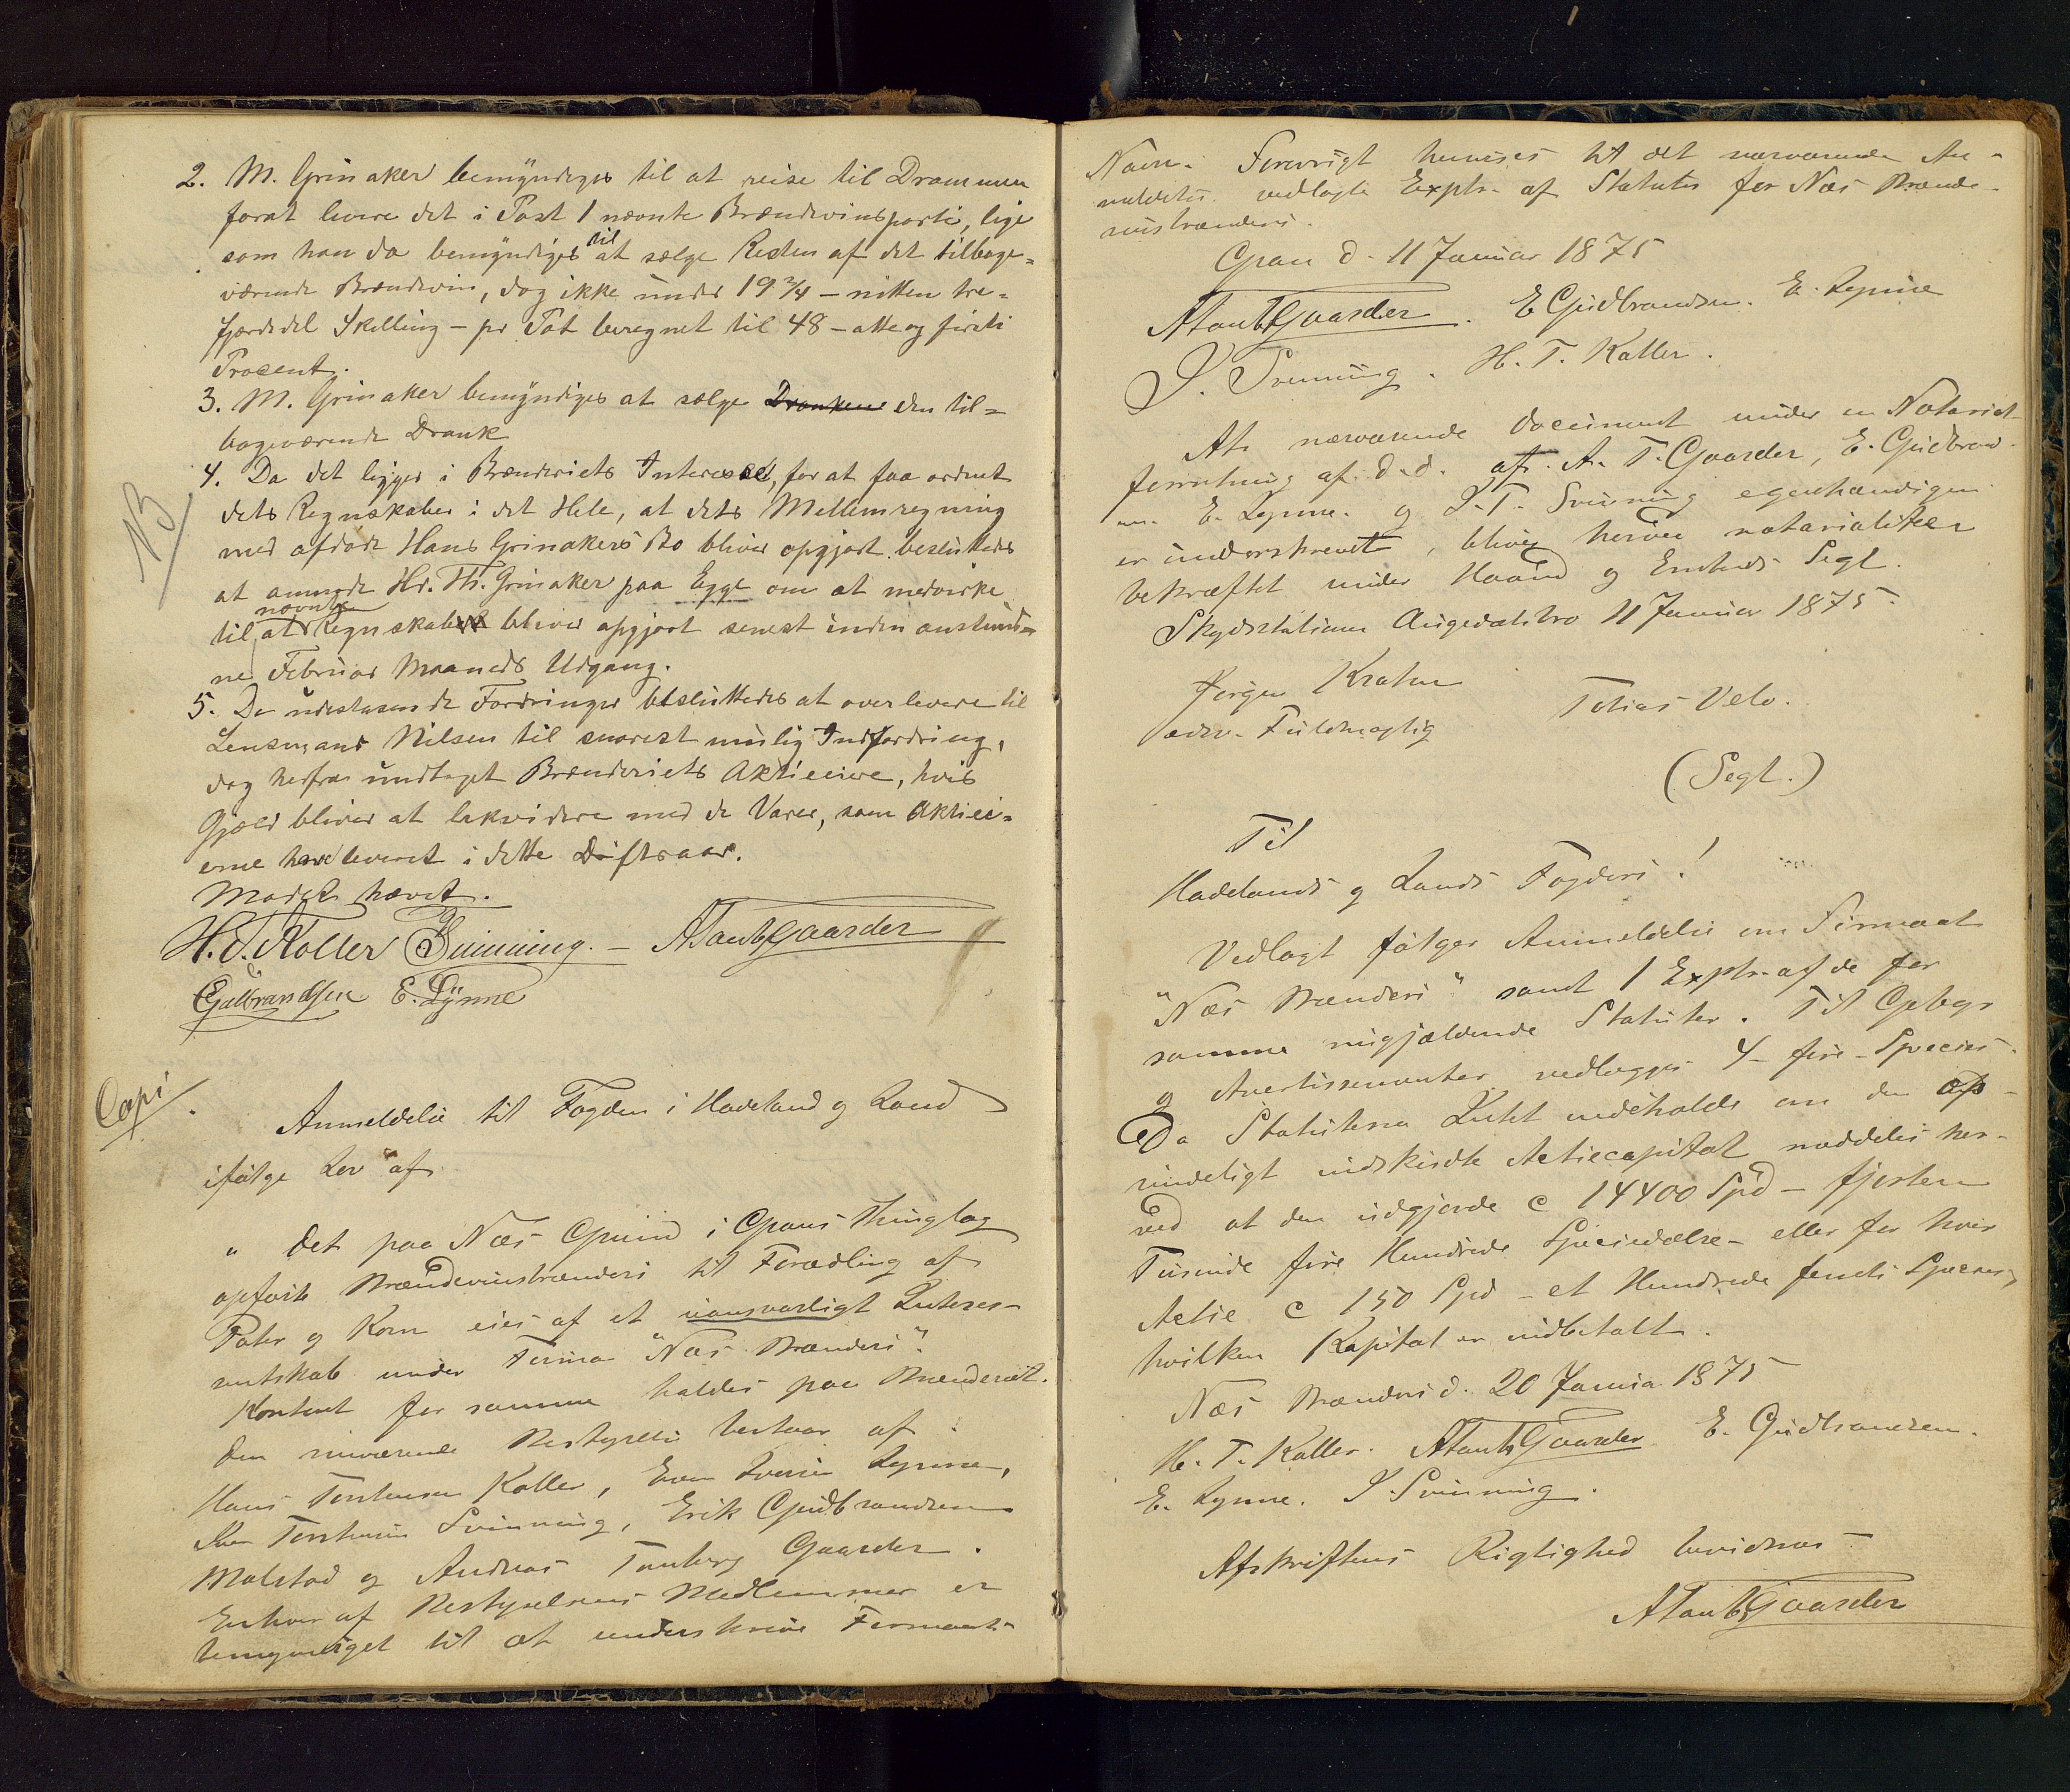 2. M. Grinaker bemyndiges til at reise til Drammen
forat levere det i Post 1 nævnte Brændevinsparti, lige
som han da bemyndiges til at sælge Resten af det tilbage=
værende Brændevin, dog ikke under 19 3/4 – nitten tre=
fjerdedel Skilling – pr Pot beregnet til 48 – otte og førti
Procent.
3. M. Grinaker bemyndiges at sælge Drankene den til=
bageværende Drank
4. Da det ligger i Brænderiets Interesse, for at faa ordnet
dets Regnskaber i det Hele, at dets Mellemregning
med afdøde Hans Grinakers Bo bliver opgjort besluttedes
at anmode Hr. Th. Grinaker paa Egge om at medvirke
NB
til at nævnte Regnskaber bliver opgjort senest inden anstund=
ne Februar Maaneds Udgang.
5. De udestaaende Fordringer besluttedes at overlevere til
Lensmand Nilsen til snarest mulig Indfordring,
dog herfra undtaget Brænderiets Aktieeiere, hvis
Gjæld bliver at likvidere med de Varer, som Aktieei=
erne have leveret i dette Driftsaar.
Mødet hævet.
H. T. Koller Svinning. – A Tanb Gaarder
E Gulbrandsen E. Lynne
Copi
Anmeldelse til Fogden i Hadeland og Land
ifølge Lov af
" Det paa Næs Grund i Grans Thinglag
opførte Brændevinsbrænderi til Forædling af
Poter og Korn eies af et uansvarligt Interes=
sentskab under Firma "Næs Brænderi".
Kontoret for samme holdes paa Brænderiet.
Den nuværende Bestyrelse bestaar af
Hans Torstensen Koller, Even Iversen Lynne,
Iver Torstensen Svinning, Erik Gudbrandsen
Molstad og Andreas Tanberg Gaarder.
Enhver af Bestyrelsens Medlemmer er
bemyndiget til at underskrive Firmaets
Navn. Forøvrigt henvises til det nærværende An=
meldelse vedlagte Explr. af Statuter for Næs Brænde=
vinsbrænderi.
Gran d. 11 Januar 1875
A Tanb Gaarder. E Gudbrandsen. E. Lynne
I. Svinning. H. T. Koller.
At nærværende Document under en Notarial
forretning af d.d. af A. T. Gaarder, E. Gudbrand=
sen. E. Lynne. og I. T. Svinning egenhændigen
er underskrevet, blive herved notarialiter
bekræftet under Haand og Embeds Segl.
Skydsstation Augedalsbro 11 Januar 1875.
Jørgen Krohn
edsv. Fuldmægtig
Tobias Velo.
(Segl.)
Til
Hadelands og Lands Fogderi!
Vedlagt følger Anmeldelse om Firmaet
"Næs Brænderi" samt 1 Explr. af de for
samme nugjældende Statuter. Til Gebyr
og Avertissementer vedlægges 4 – fire – Species.
Da Statuterne Intet indeholde om den op=
rindeligt indskudte Actiecapital meddeles her=
ved at den udgjorde c 14400 Spd – fjorten
Tusinde fire Hundrede Speciedaler – eller for hver
Actie c 150 Spd – et Hundrede femti Species,
hvilken Kapital er indbetalt.
Næs Brænderi d. 20 Janua 1875
H. T. Koller. A Tanb Gaarder E. Gudbrandsen.
E. Lynne. I. Svinning.
Afskriftens Rigtighed bevidnes
A Tanb Gaarder